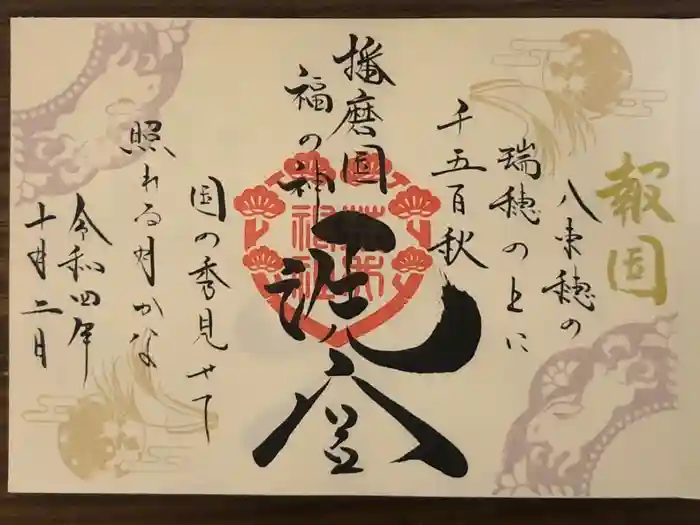 報国
八束穂の
瑞穂の上に
千五百秋
播磨国
福の神
国の秀見せて
照れる月かな
令和四年
十月二日